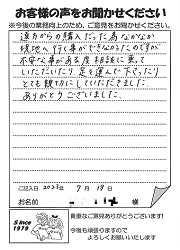 お客様の声をお聞かせください
※今後の業務向上のため、ご意見をお聞かせください。
遠方からの購入だった為なかなか
現地へ行く事ができなかったのですが
不安な事がある度相談に乗って
いただいたり、足を運んで下さったり
とても親切にしていただきました。
ありがとうございました。
ご記入日 2023年 7月 18日
お名前 様
貴重なご意見ありがとうございます!
今後も頑張りますので
よろしくお願いいたします
Since
1979